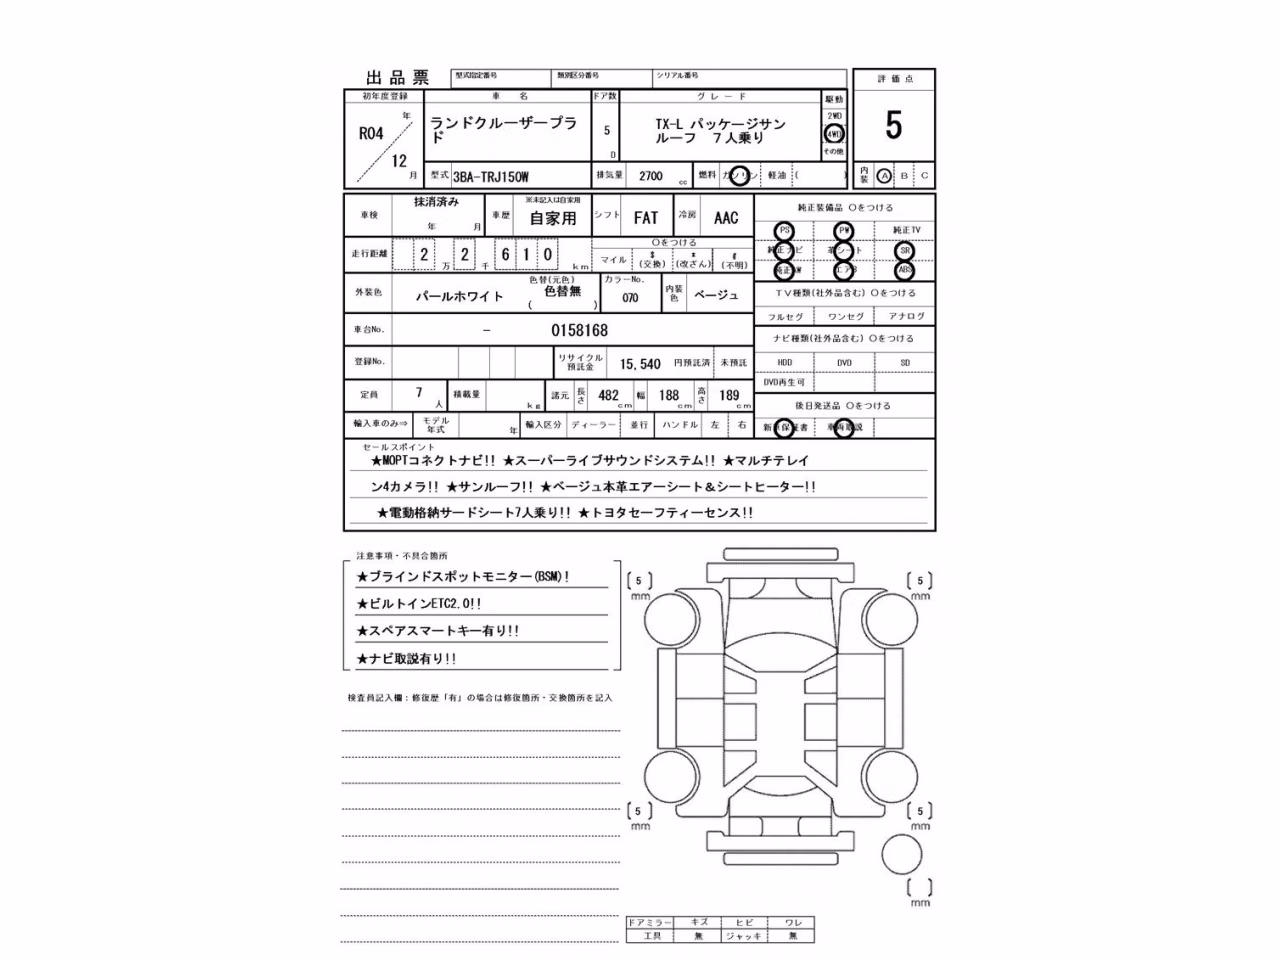 出品票
型式指定番号 類別区分番号 シリアル番号
評価点
5
初年度登録 車 名 ドア数 グレード 駆動
R04 年 12 月
ランドクルーザープラ
ド
5 D
TX-L パッケージサン
ルーフ 7人乗り
2WD
4WD
その他
型式 3BA-TRJ150W 排気量 2700 cc 燃料 ガソリン 軽油 ( )
内装 A B C
車検 抹消済み 年 月 車歴 ※未記入は自家用 自家用 シフト FAT 冷房 AAC
走行距離 2 万 2 千 6 1 0 km
○をつける
マイル $ (交換) * (改ざん) # (不明)
外装色 パールホワイト 色替(元色) 色替無 ( ) カラーNo. 070 内装色 ベージュ
車台No. － 0158168
登録No. リサイクル預託金 15,540 円預託済 未預託
定員 7 人 積載量 kg 諸元 長さ 482 cm 幅 188 cm 高さ 189 cm
輸入車のみ⇒ モデル年式 年 輸入区分 ディーラー 並行 ハンドル 左 右
純正装備品 ○をつける
PS PW 純正TV
純正ナビ 革シート SR
純正AW エアB ABS
TV種類(社外品含む) ○をつける
フルセグ ワンセグ アナログ
ナビ種類(社外品含む) ○をつける
HDD DVD SD
DVD再生可
後日発送品 ○をつける
新車保証書 車両取説
セールスポイント
★MOPTコネクトナビ!! ★スーパーライブサウンドシステム!! ★マルチテレイ
ン4カメラ!! ★サンルーフ!! ★ベージュ本革エアーシート＆シートヒーター!!
★電動格納サードシート7人乗り!! ★トヨタセーフティーセンス!!
注意事項・不具合箇所
★ブラインドスポットモニター(BSM)!
★ビルトインETC2.0!!
★スペアスマートキー有り!!
★ナビ取説有り!!
検査員記入欄：修復歴「有」の場合は修復箇所・交換箇所を記入
[5] mm
[5] mm
[5] mm
[5] mm
[ ] mm
ドアミラー キズ ヒビ ワレ
工具 無 ジャッキ 無